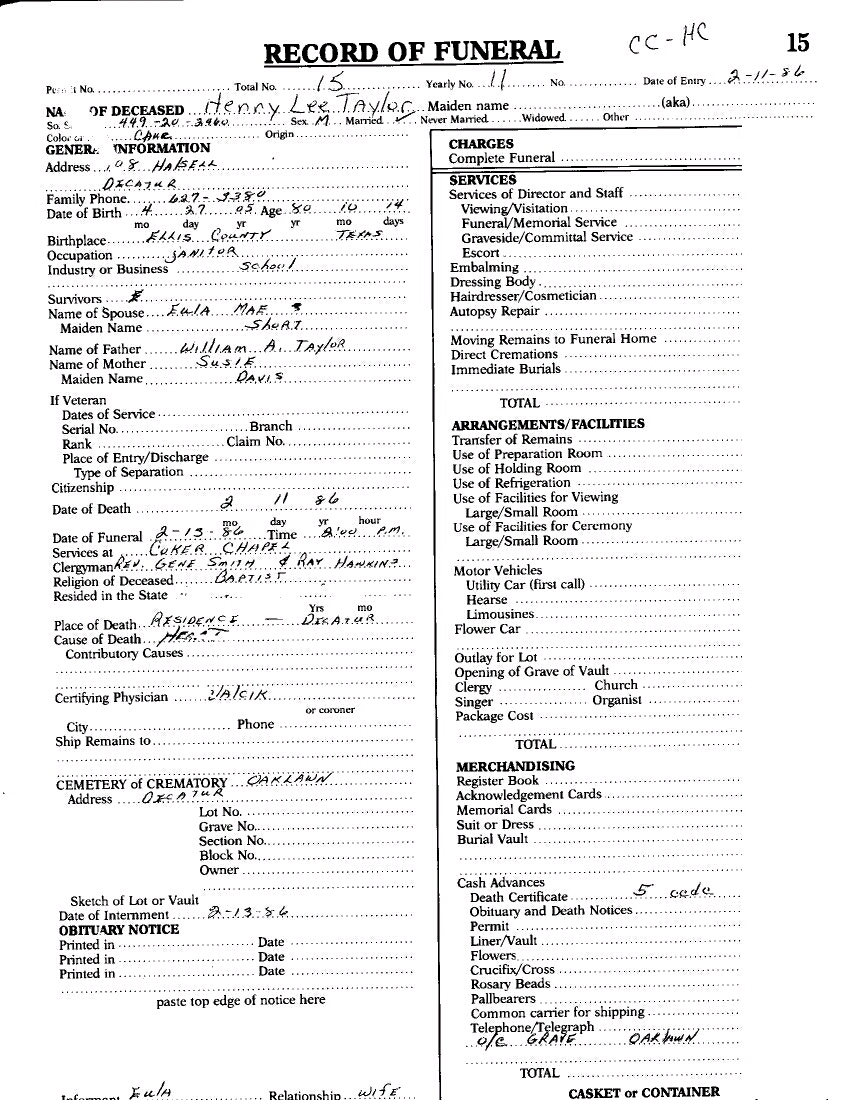 CC-HC
15
RECORD OF FUNERAL
No. Total No. 15 Yearly No. 11 No. Date of Entry 2-11-86
NA OF DECEASED Henry Lee Taylor Maiden name (aka)
So. S. 449-20-3960 Sex M Married ✓ Never Married Widowed Other
Color or Cauc. Origin
GENERAL INFORMATION
Address 108 HALSELL
DECATUR
Family Phone 627-3380
Date of Birth 4 27 05 Age 80 10 14
mo day yr yr mo days
Birthplace ELLIS COUNTY TEXAS
Occupation JANITOR
Industry or Business School
Survivors
Name of Spouse EulA MAE S
Maiden Name SHORT
Name of Father WILLIAM A. TAYLOR
Name of Mother SUSIE
Maiden Name DAVIS
If Veteran
Dates of Service
Serial No. Branch
Rank Claim No.
Place of Entry/Discharge
Type of Separation
Citizenship
Date of Death 2 11 86
mo day yr hour
Date of Funeral 2-13-86 Time 2:00 P.M.
Services at COKER CHAPEL
Clergyman REV. GENE SMITH & RAY HAWKINS
Religion of Deceased BAPTIST
Resided in the State
Yrs mo
Place of Death RESIDENCE — DECATUR
Cause of Death HEART
Contributory Causes
Certifying Physician
or coroner
City Phone
Ship Remains to
CEMETERY of CREMATORY OAKLAWN
Address DECATUR
Lot No.
Grave No.
Section No.
Block No.
Owner
Sketch of Lot or Vault
Date of Internment 2-13-86
OBITUARY NOTICE
Printed in Date
Printed in Date
Printed in Date
paste top edge of notice here
Informant EulA Relationship WIFE
CHARGES
Complete Funeral
SERVICES
Services of Director and Staff
Viewing/Visitation
Funeral/Memorial Service
Graveside/Committal Service
Escort
Embalming
Dressing Body
Hairdresser/Cosmetician
Autopsy Repair
Moving Remains to Funeral Home
Direct Cremations
Immediate Burials
TOTAL
ARRANGEMENTS/FACILITIES
Transfer of Remains
Use of Preparation Room
Use of Holding Room
Use of Refrigeration
Use of Facilities for Viewing
Large/Small Room
Use of Facilities for Ceremony
Large/Small Room
Motor Vehicles
Utility Car (first call)
Hearse
Limousines
Flower Car
Outlay for Lot
Opening of Grave of Vault
Clergy Church
Singer Organist
Package Cost
TOTAL
MERCHANDISING
Register Book
Acknowledgement Cards
Memorial Cards
Suit or Dress
Burial Vault
Cash Advances
Death Certificate 5
Obituary and Death Notices
Permit
Liner/Vault
Flowers
Crucifix/Cross
Rosary Beads
Pallbearers
Common carrier for shipping
Telephone/Telegraph
O/C GRAVE OAKLAWN
TOTAL
CASKET or CONTAINER